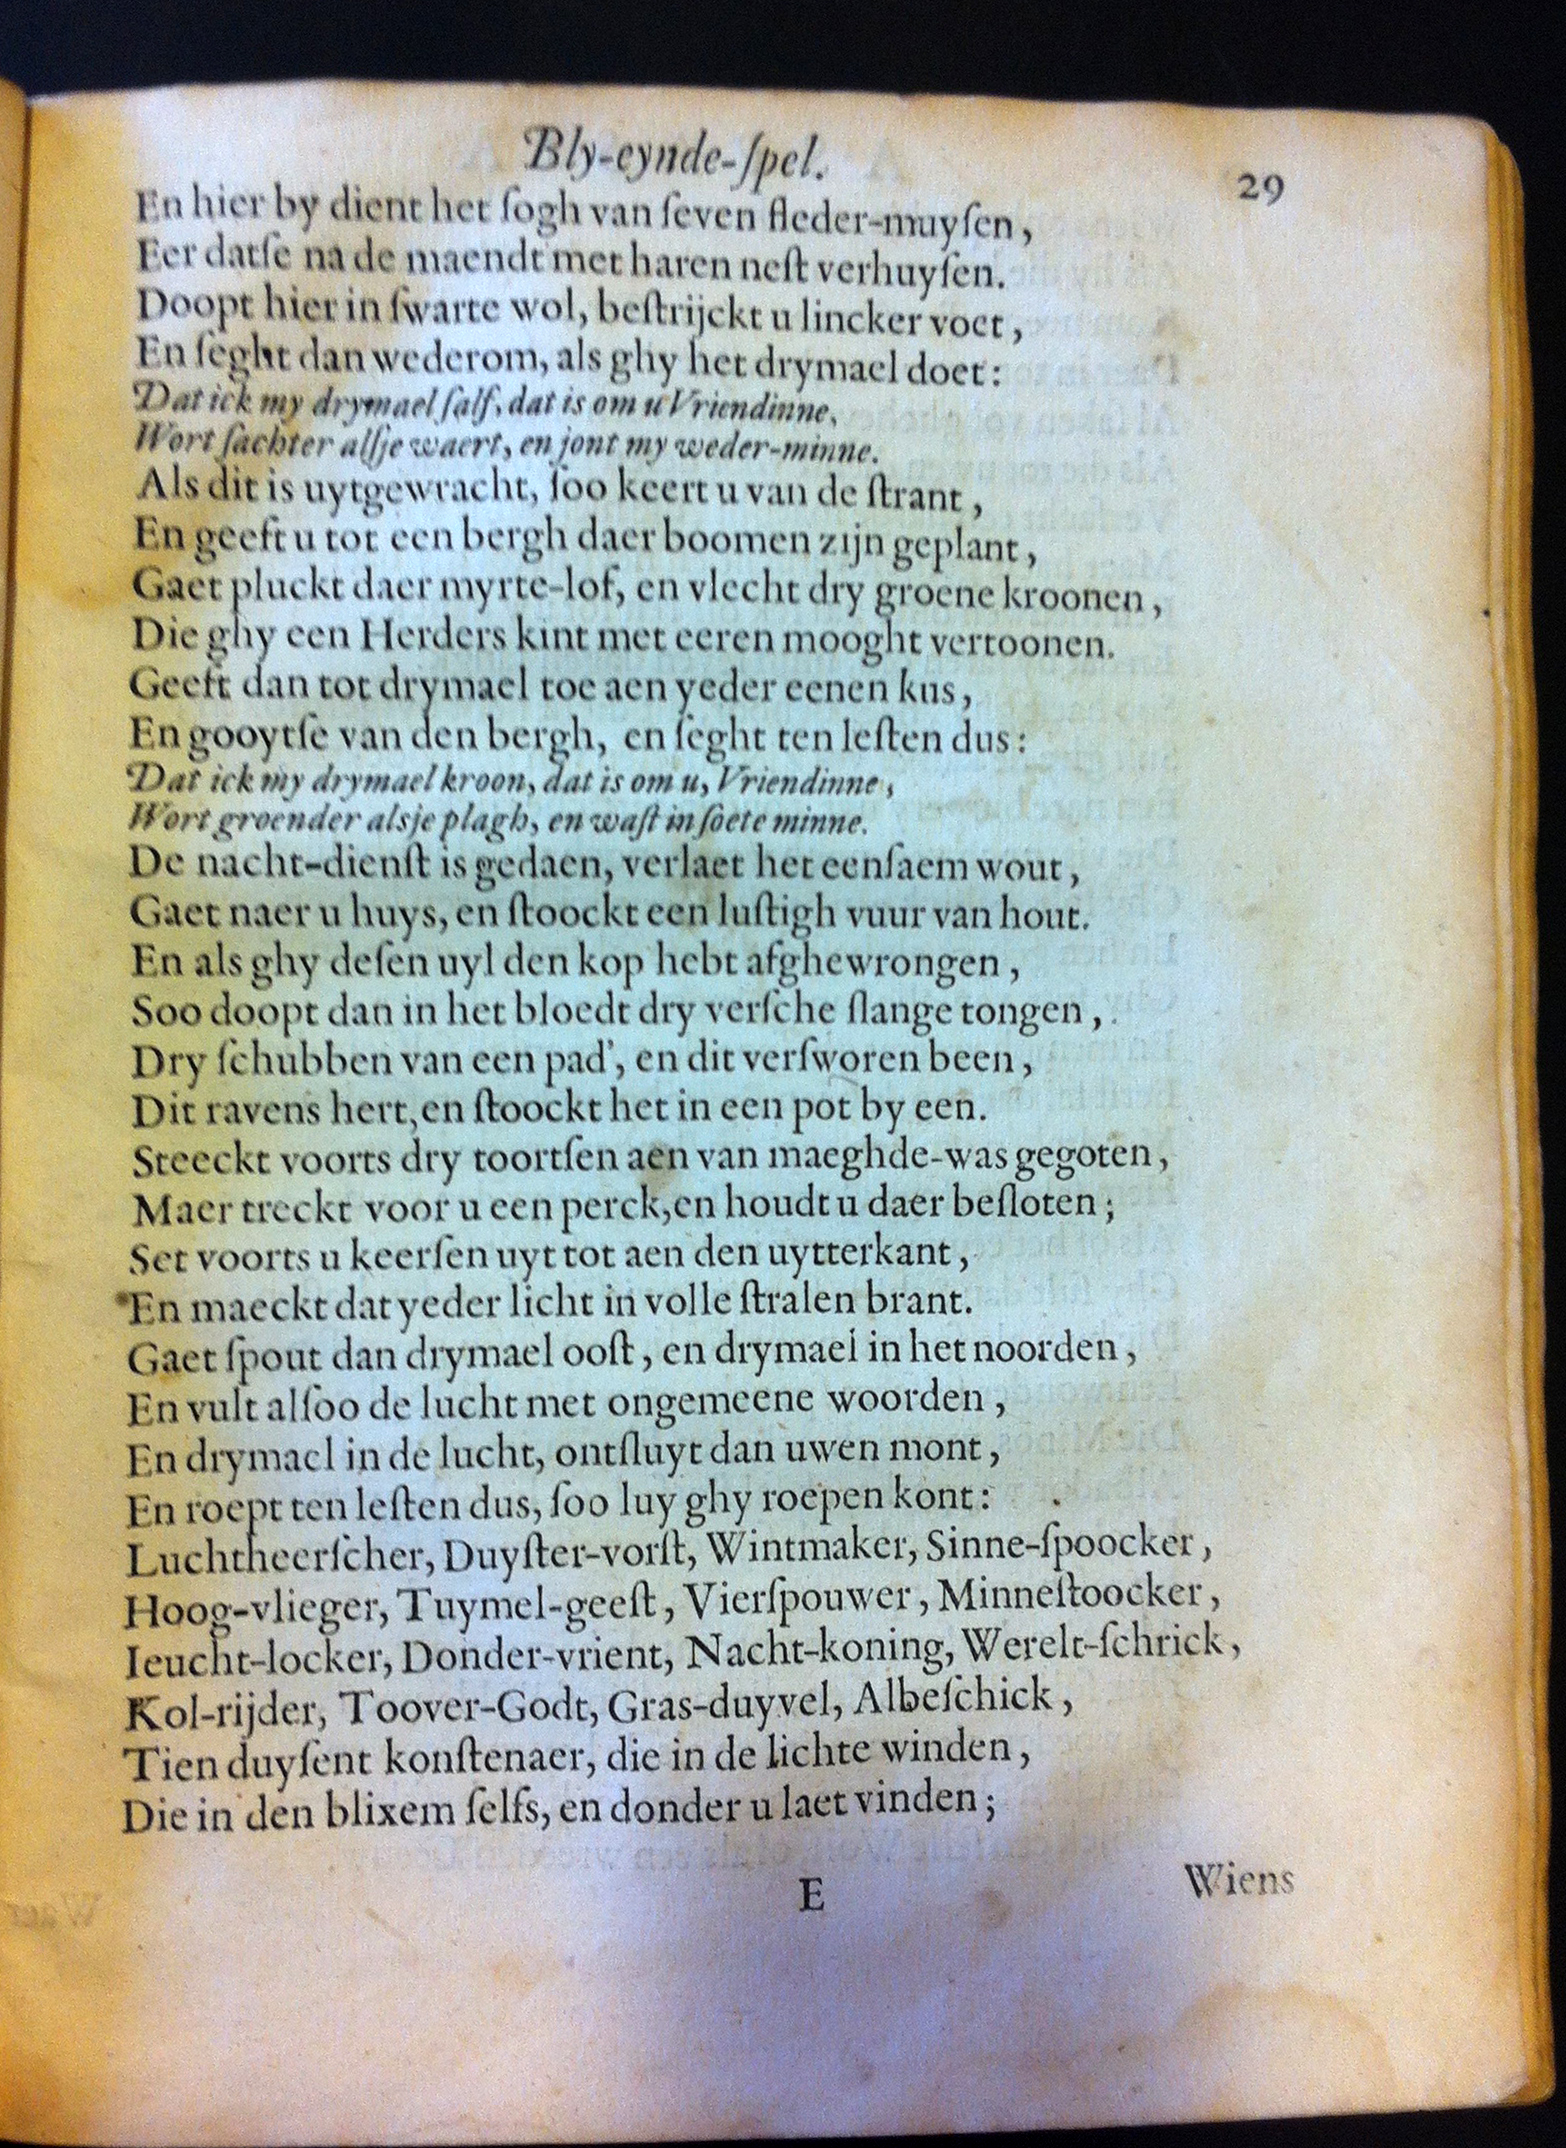 Bly-eynde-ſpel.
29
En hier by dient het ſogh van ſeven fleder-muyſen,
Eer datſe na de maendt met haren neſt verhuyſen.
Doopt hier in ſwarte wol, beſtrijckt u lincker voet,
En ſeght dan wederom, als ghy het drymael doet:
Dat ick my drymael ſalf, dat is om u Vriendinne,
Wort ſachter alſje waert, en jont my weder-minne.
Als dit is uytgewracht, ſoo keert u van de ſtrant,
En geeft u tot een bergh daer boomen zijn geplant,
Gaet pluckt daer myrte-lof, en vlecht dry groene kroonen,
Die ghy een Herders kint met eeren mooght vertoonen.
Geeft dan tot drymael toe aen yeder eenen kus,
En gooytſe van den bergh, en ſeght ten leſten dus:
Dat ick my drymael kroon, dat is om u, Vriendinne,
Wort groender alsje plagh, en waſt in ſoete minne.
De nacht-dienſt is gedaen, verlaet het eenſaem wout,
Gaet naer u huys, en ſtoockt een luſtigh vuur van hout.
En als ghy deſen uyl den kop hebt afghewrongen,
Soo doopt dan in het bloedt dry verſche ſlange tongen,
Dry ſchubben van een pad', en dit verſworen been,
Dit ravens hert, en ſtoockt het in een pot by een.
Steeckt voorts dry toortſen aen van maeghde-was gegoten,
Maer treckt voor u een perck, en houdt u daer beſloten;
Set voorts u keerſen uyt tot aen den uytterkant,
En maeckt dat yeder licht in volle ſtralen brant.
Gaet ſpout dan drymael ooſt, en drymael in het noorden,
En vult alſoo de lucht met ongemeene woorden,
En drymael in de lucht, ontſluyt dan uwen mont,
En roept ten leſten dus, ſoo luy ghy roepen kont:
Luchtheerſcher, Duyſter-vorſt, Wintmaker, Sinne-ſpoocker,
Hoog-vlieger, Tuymel-geeſt, Vierſpouwer, Minneſtoocker,
Ieucht-locker, Donder-vrient, Nacht-koning, Werelt-ſchrick,
Kol-rijder, Toover-Godt, Gras-duyvel, Albeſchick,
Tien duyſent konſtenaer, die in de lichte winden,
Die in den blixem ſelfs, en donder u laet vinden;
E
Wiens